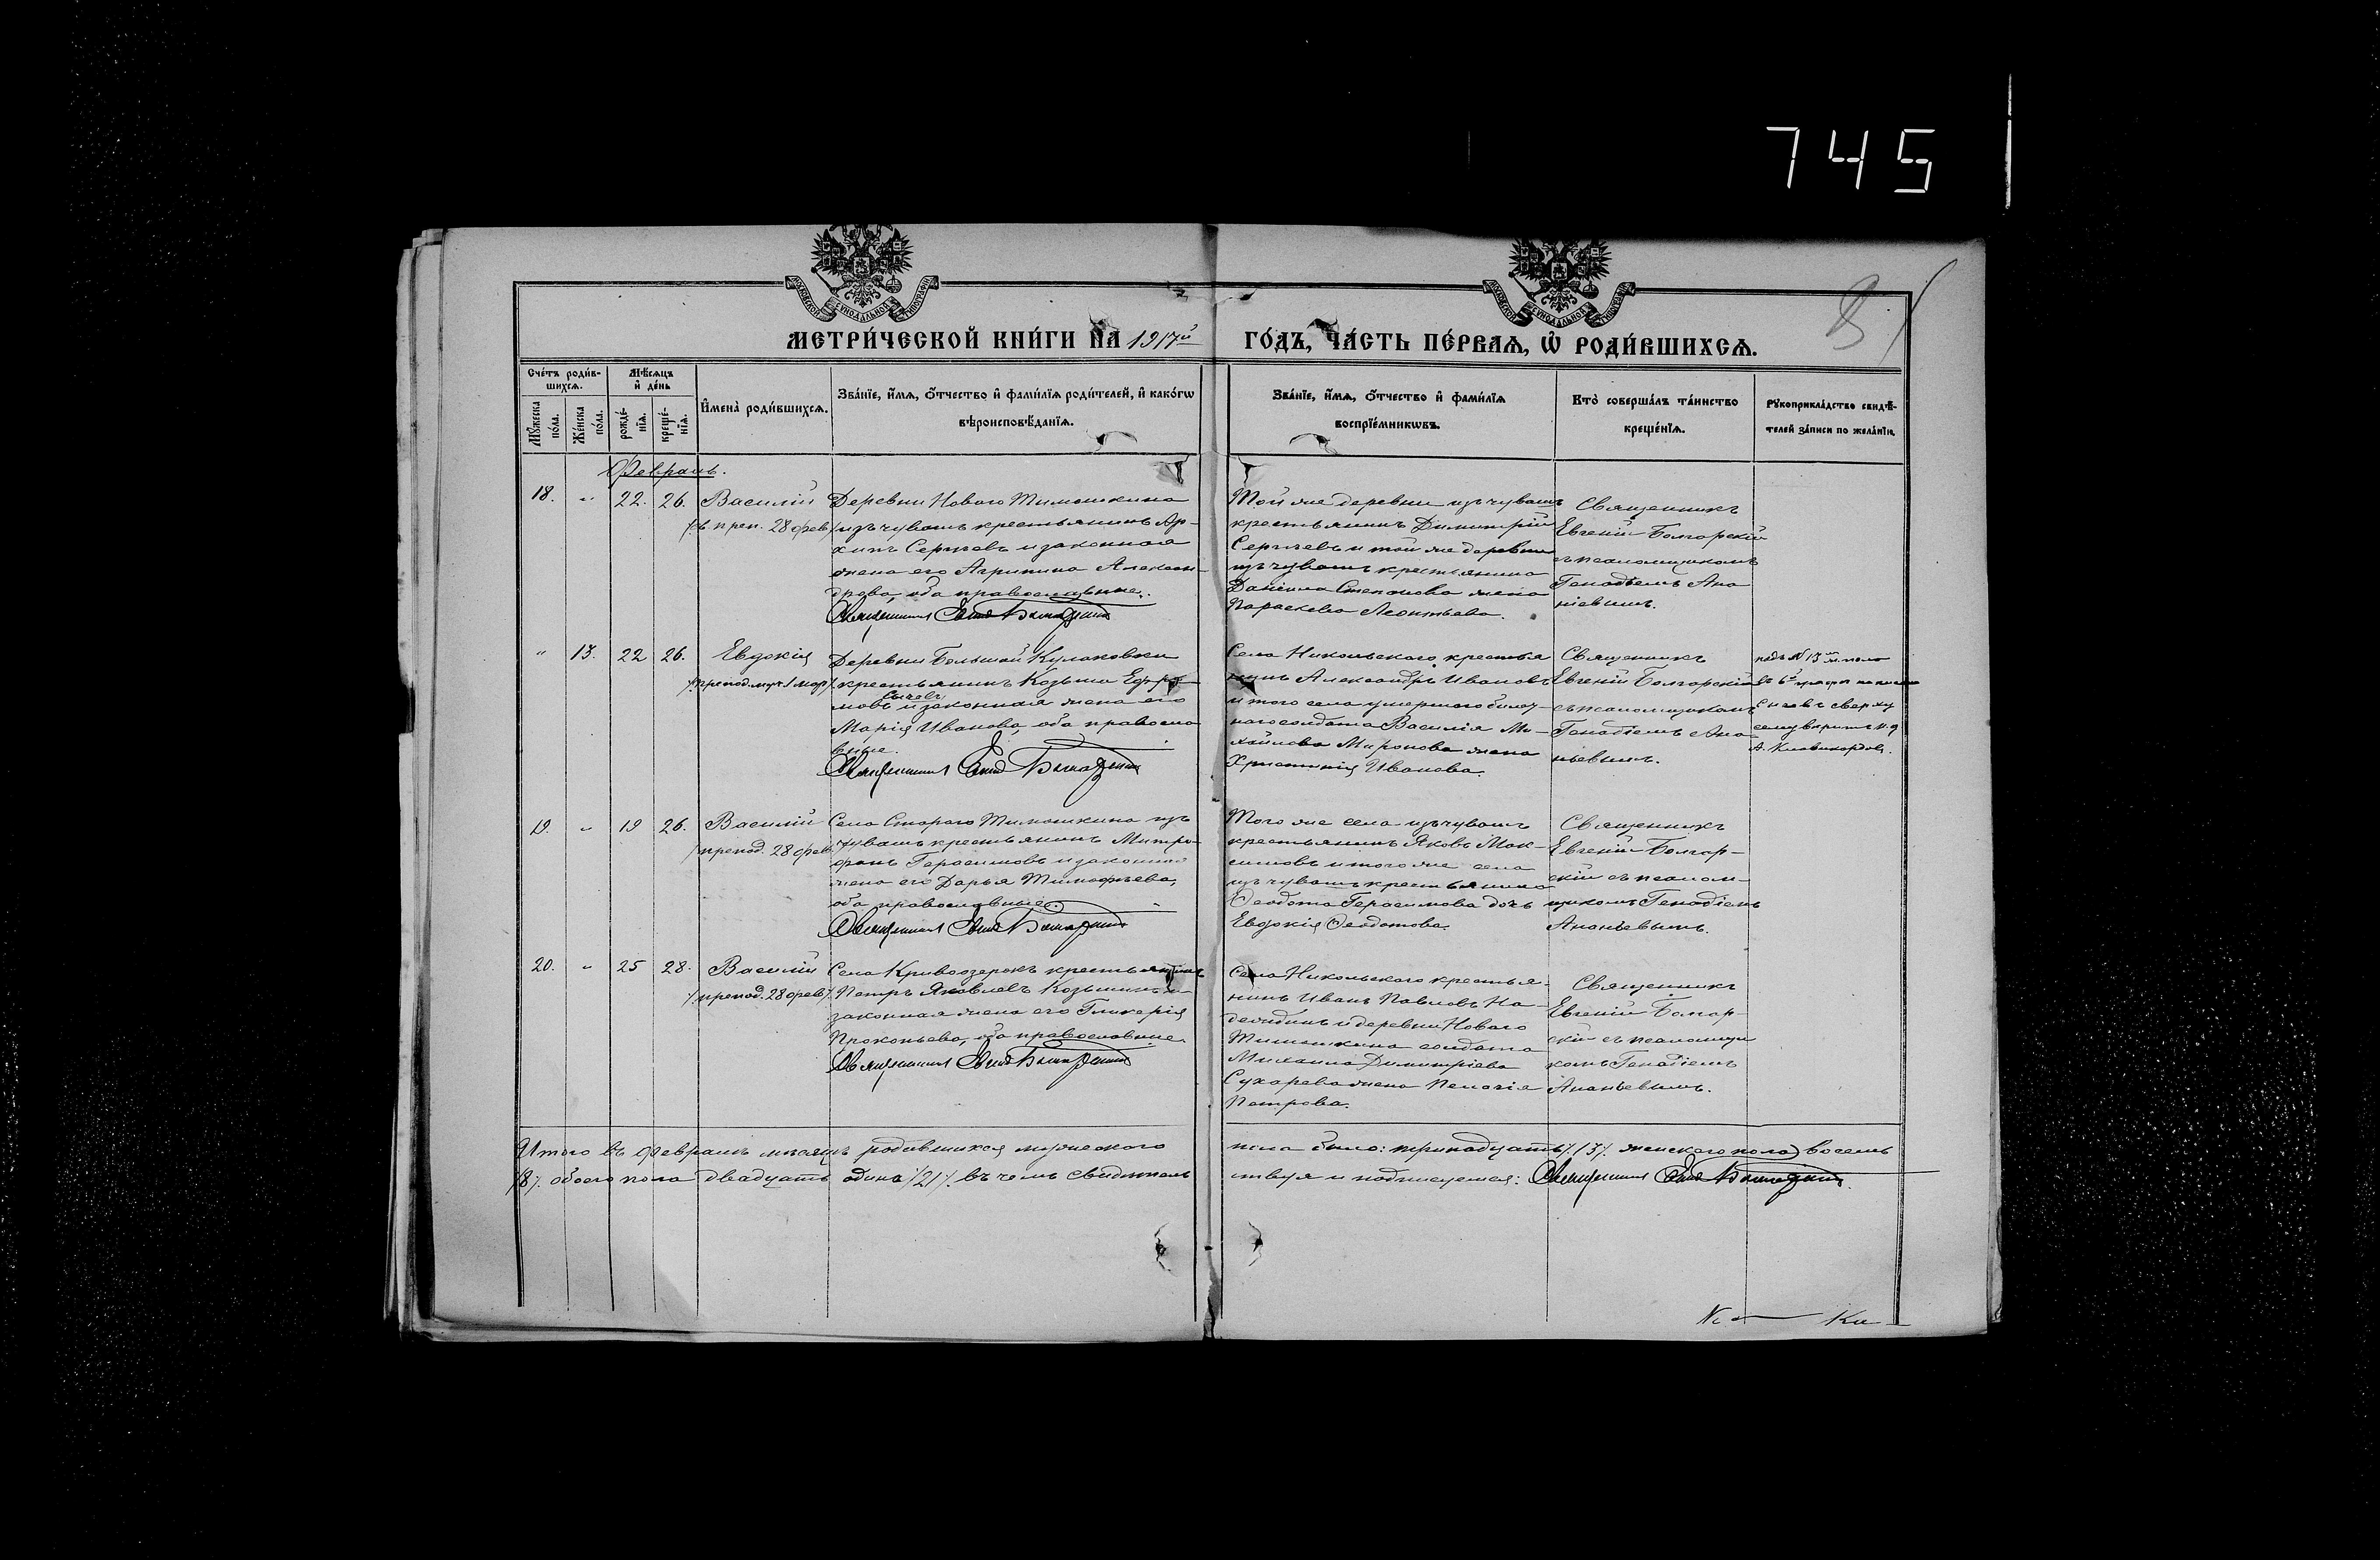 745
МЕТРИ́ЧЕСКОЙ КНИ́ГИ НА 1917й ГО́ДЪ, ЧА́СТЬ ПЕ́РВАЯ, Ѡ РОДИ́ВШИХСЯ.
Сче́тъ роди́в-
шихся.
Мѣ́сяцъ
и де́нь
Му́жеска
по́ла.
Же́нска
по́ла.
рожде́-
нія.
креще́-
нія.
Имена̀ роди́вшихся.
Зва́нїе, и́мя, о́тчество и фами́лїя роди́телей, и како́гѡ
вѣроисповѣ́данїя.
Зва́нїе, и́мя, о́тчество и фами́лїя
воспрїе́мникѡвъ.
Кто̀ соверша́лъ та́инство
креще́нїя.
Рукоприкла́дство свидѣ́-
телей за́писи по жела́нїю.
Февраль.
18. „ 22. 26. Василій
/св. преп. 28 фев/
Деревни Новаго Тимошкина
изъ чувашъ крестьянинъ Ар-
хипъ Сергѣевъ и законная
жена его Агрипина Алексан-
дрова, оба православные.
Священникъ
Той же деревни изъ чувашъ
крестьянинъ Димитрій
Сергѣевъ и той же деревни
изъ чувашъ крестьянина
Даніила Степанова жена
Параскева Леонтьева.
Священникъ
Евгеній Болгарскій
съ псаломщикомъ
Генадіемъ Ана
ніевымъ.
„ 13. 22 26. Евдокія
/препод. муч. 1 мар/
Деревни Большой Кулаковки
крестьянинъ Козьма Ефре-
Сычевъ
мовъ и законная жена его
Марія Иванова, оба правосла
вные.
Священникъ
Села Никольскаго крестья
нинъ Александръ Ивановъ
и того села умершаго билет-
наго солдата Василія Ми-
хайлова Миронова жена
Христинія Иванова.
Священникъ
Евгеній Болгарскій
съ псаломщикомъ
Генадіемъ Ана
ньевымъ.
подъ № 13
Сычевъ сверху
19. „ 19 26. Василій
/препод. 28 фев/
Села Стараго Тимошкина изъ
чувашъ крестьянинъ Митро-
фанъ Герасимовъ и законная
жена его Дарья Тимофѣева,
оба православные.
Священникъ
Того же села изъ чувашъ
крестьянинъ Яковъ Мак-
симовъ и того же села
изъ чувашъ крестьянина
Ѳеодота Герасимова дочь
Евдокія Ѳеодотова.
Священникъ
Евгеній Болгар-
скій съ псалом-
щикомъ Генадіемъ
Ананьевымъ.
20. „ 25 28. Василій
/препод. 28 фев/
Села Кривоозерокъ крестьянинъ
Петръ Яковлевъ Козьминъ и
законная жена его Гликерія
Прокопьева, оба православные.
Священникъ
Села Никольскаго крестья-
нинъ Иванъ Павловъ На-
деждинъ и деревни Новаго
Тимошкина солдата
Михаила Димитріева
Сухарева жена Пелагія
Петрова.
Священникъ
Евгеній Болгар-
скій съ псаломщи
комъ Генадіемъ
Ананьевымъ.
Итого въ Февралѣ мѣсяцѣ родившихся мужескаго пола было: тринадцать /13/. женскаго пола восемь
/8/. обоего пола двадцать одинъ /21/. въ чемъ свидѣтель ствуя и подписуемся: Священникъ